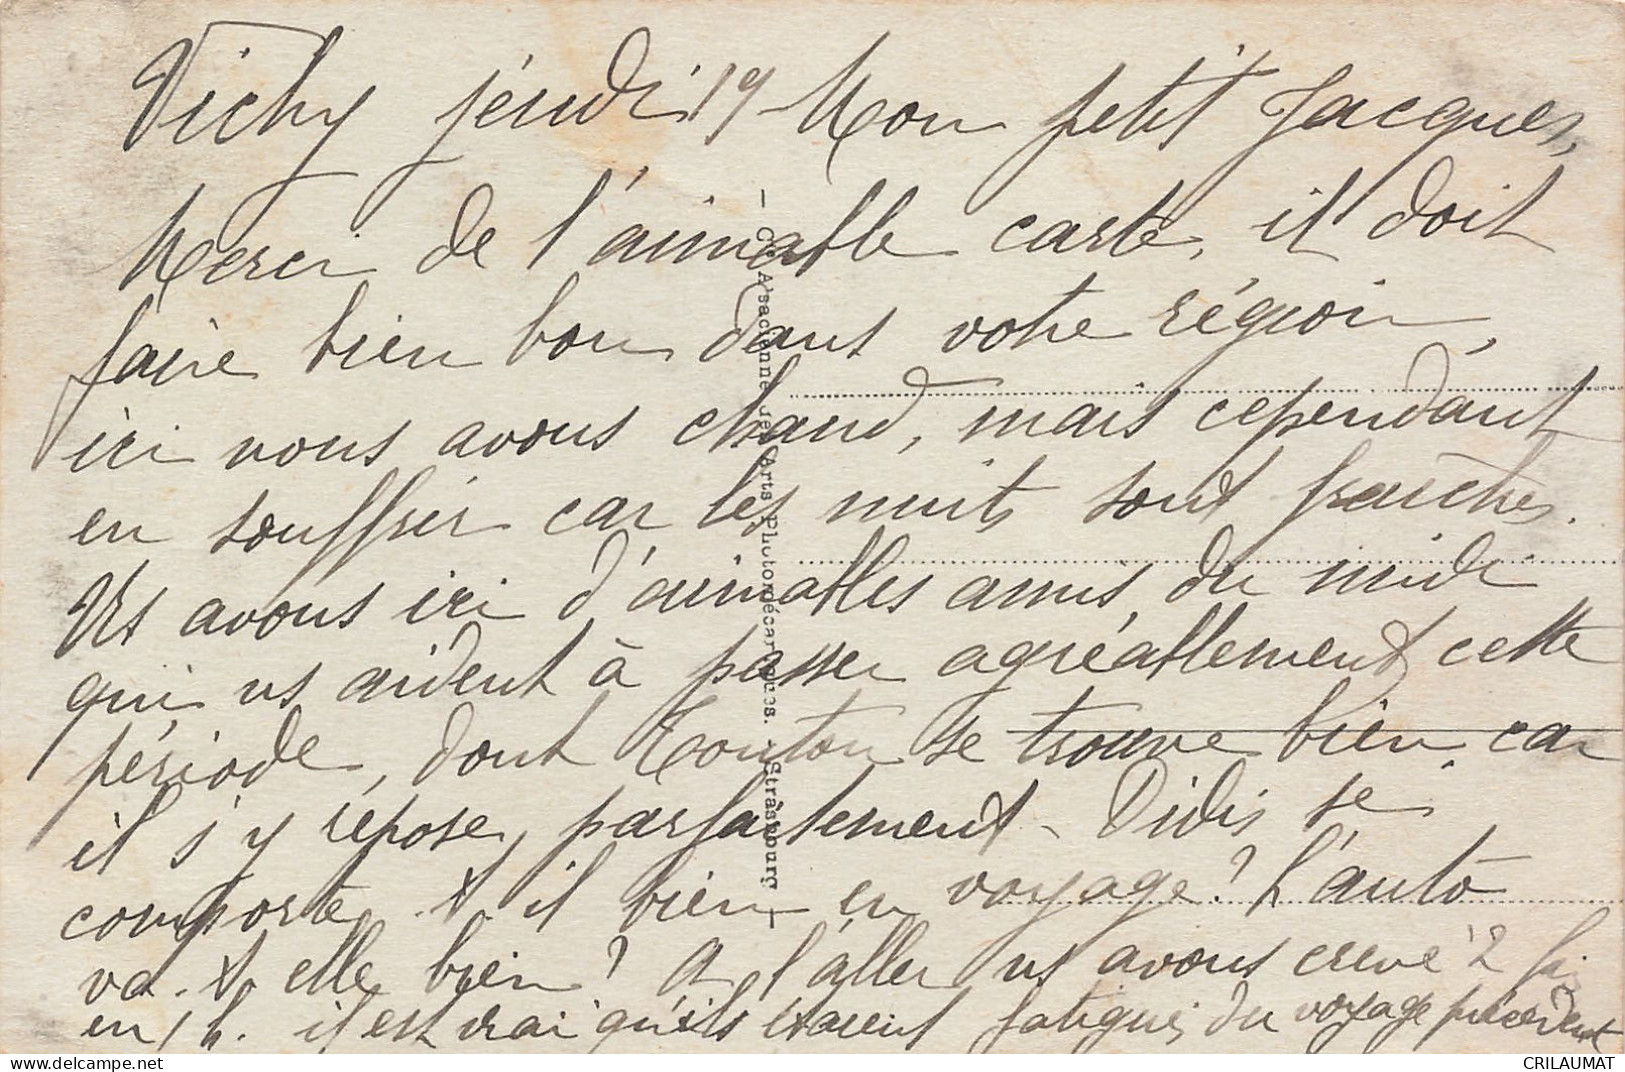 Vichy jeudi 19 - Mon petit Jacques,
Merci de l'aimable carte, il doit
faire bien bon dans votre région,
ici nous avons chaud, mais cependant
en souffrir car les nuits sont fraîches.
Ns avons ici d'aimables amis du midi
qui ns aident à passer agréablement cette
période, dont Tonton se trouve bien car
il s'y repose parfaitement - Didis se
comporte-t-il bien en voyage? L'auto
va-t-elle bien? A l'aller ns avons crevé 2 fois
en 1 h. il est vrai qu'ils étaient fatigués du voyage précédent
- Cie Alsacienne des Arts Photomécaniques. - Strasbourg -
www.delcampe.net
CRILAUMAT